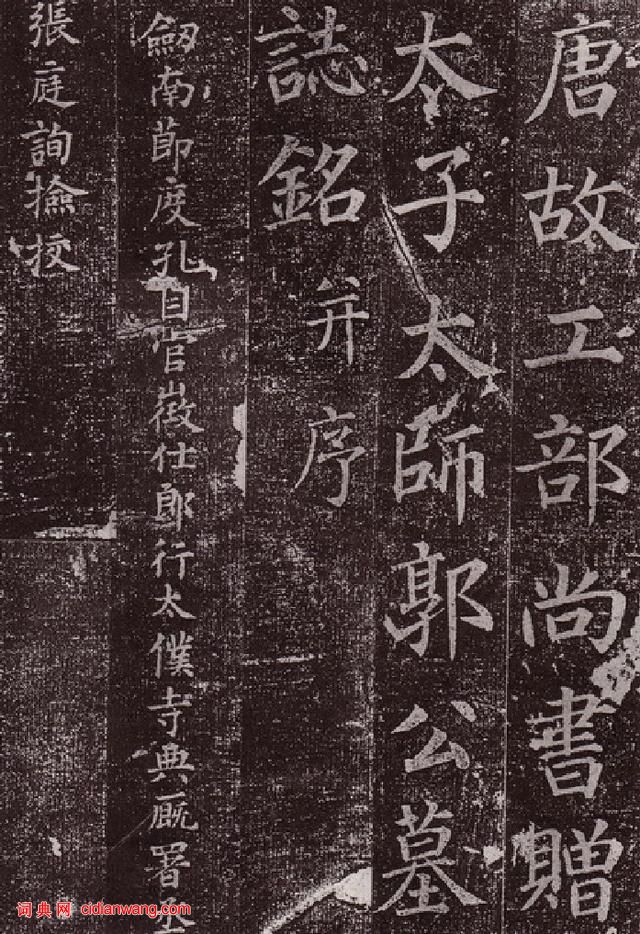 唐故工部尚書贈
太子太師郭公墓
誌銘并序
劒南節度孔目官徵仕郎行太僕寺典厩署
張庭詢撿挍
词典网 cidianwang.com